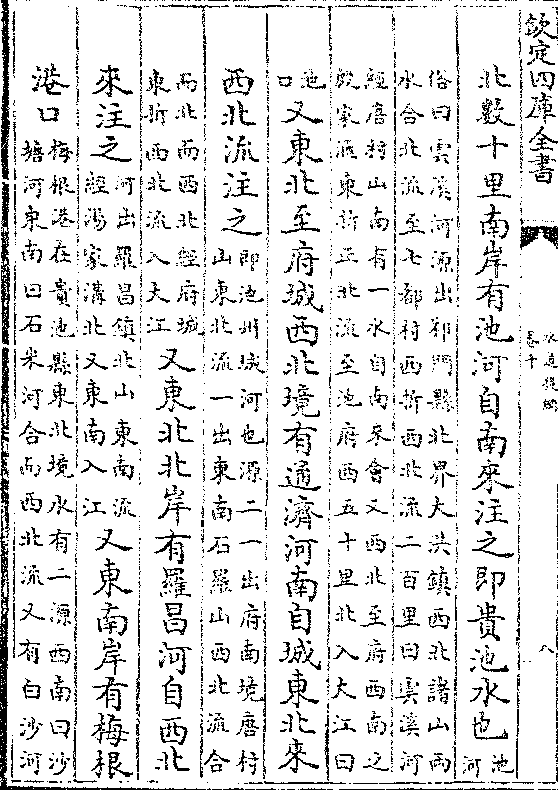 欽定四庫全書
水道提綱
卷十
八
北數十里南岸有池河自南來注之即貴池水也池河
俗曰雲溪河源出祁門縣北界大洪鎮西北諸山兩
水合北流至七都村西折西北流二百里曰雲溪河
經唐村山南有一水自南來會又西北至府西南之
殷家匯東折正北流至池府西五十里北入大江曰
池口又東北至府城西北境有通濟河南自城東北來
西北流注之即池州城河也源二一出府南境唐村
山東北流一出東南石羅山西北流合
而北而西北經府城
東折西北流入大江又東北北岸有羅昌河自西北
來注之河出羅昌鎮北山東南流
經湯家溝北又東南入江又東南岸有梅根
港口梅根港在貴池縣東北境水有二源西南曰沙
塘河東南曰石米河合而西北流又有白沙河